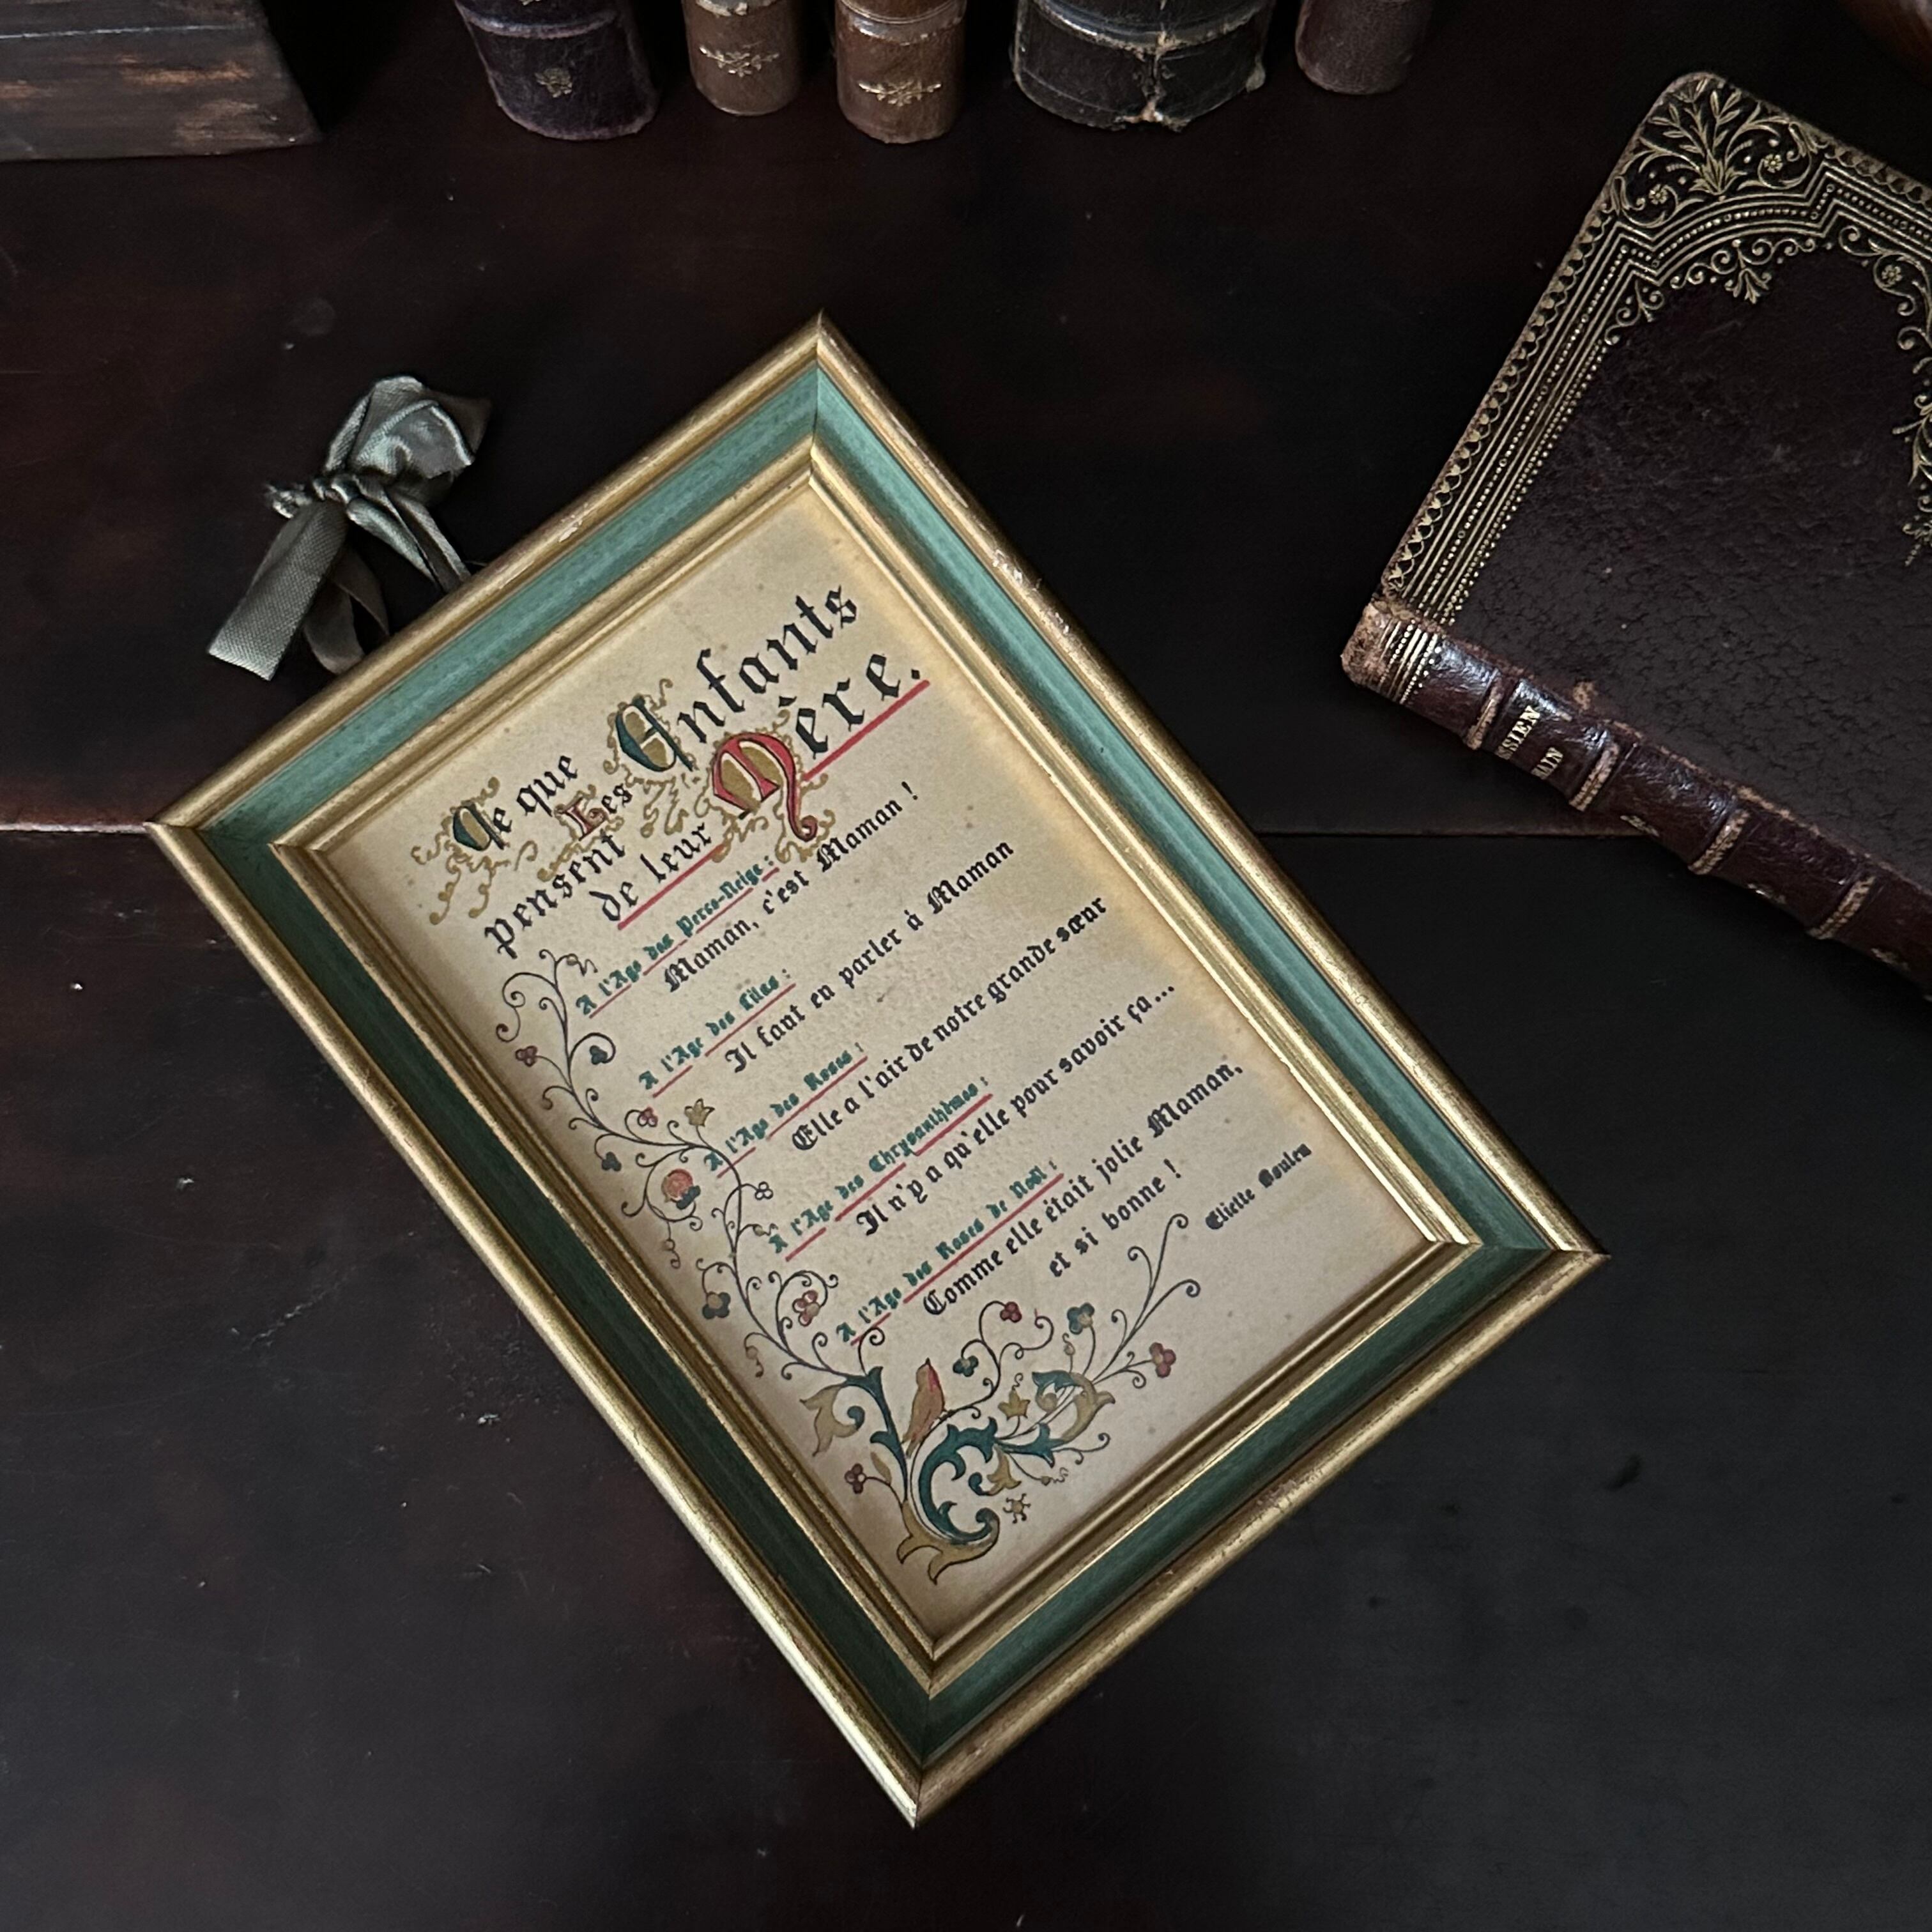 Ce que
Les Enfants
pensent
de leur Mère.
A l'Age des Perce-Neige :
Maman, c'est Maman !
A l'Age des Lilas :
Il faut en parler à Maman
A l'Age des Roses :
Elle a l'air de notre grande sœur
A l'Age des Chrysanthèmes :
Il n'y a qu'elle pour savoir ça...
A l'Age des Roses de Noël :
Comme elle était jolie Maman,
et si bonne !
Eliette